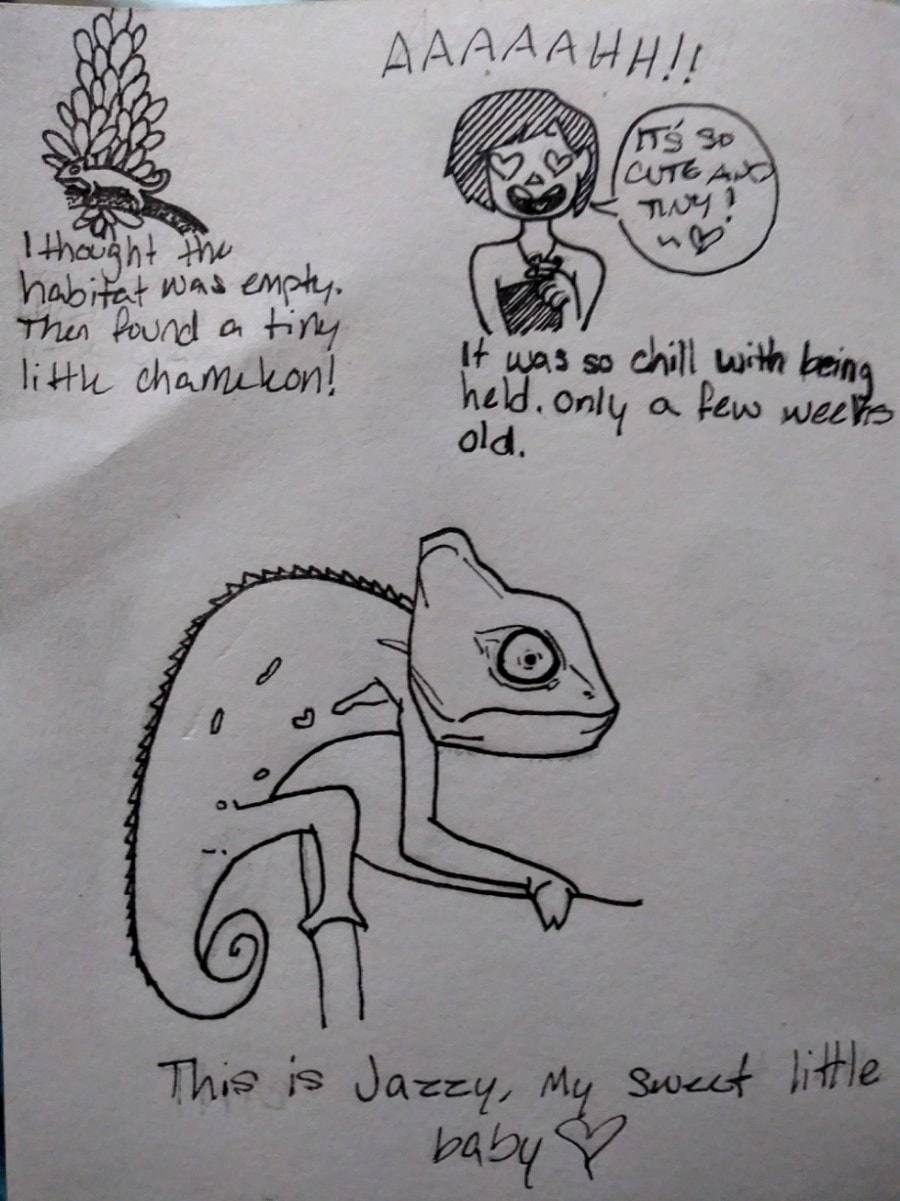 I thought the
habitat was empty.
Then found a tiny
little chameleon!
AAAAAHH!!
IT'S SO
CUTE AND
TINY!
♡
It was so chill with being
held. only a few weeks
old.
This is Jazzy, My sweet little
baby ♡